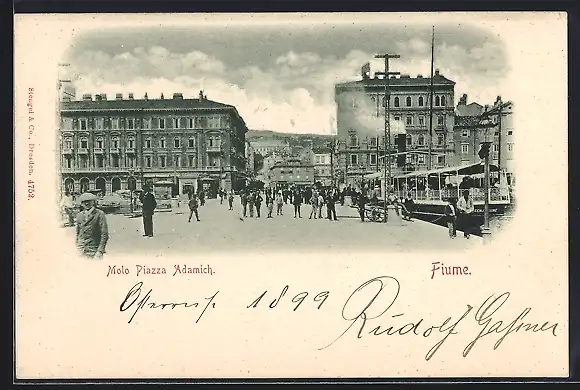 Stengel & Co., Dresden. 4752.
Molo Piazza Adamich.
Fiume.
1899 Rudolf